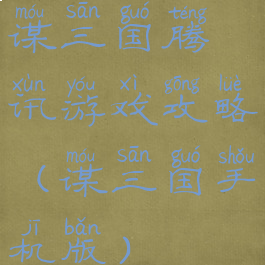 móu sān guó téng
谋三国腾
xùn yóu xì gōng lüè
讯游戏攻略
móu sān guó shǒu
（谋三国手
jī bǎn
机版）